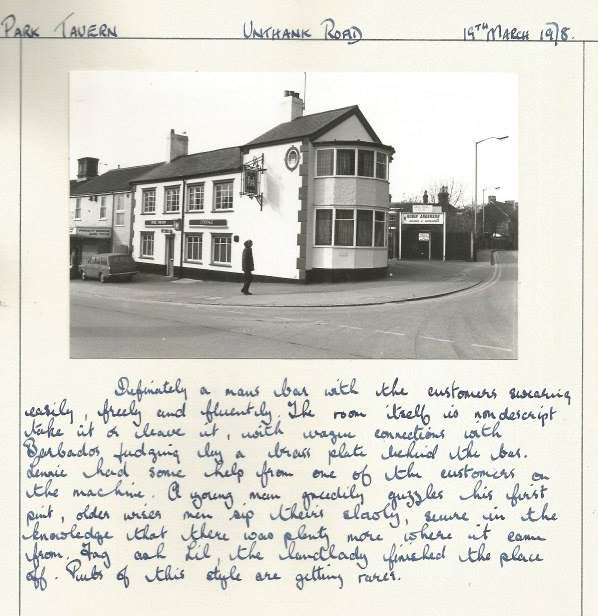 PARK TAVERN UNTHANK ROAD 19TH MARCH 1978.
ROBIN ANDERSON
Definately a mans bar with the customers swearing
easily, freely and fluently. The room itself is nondescript
take it or leave it, with vague connections with
Barbados judging by a brass plate behind the bar.
Lennie had some help from one of the customers on
the machine. A young man greedily guzzles his first
pint, older wiser men sip theirs slowly, secure in the
knowledge that there was plenty more where it came
from. Fag ash Lil, the landlady finished the place
off. Pubs of this style are getting rarer.